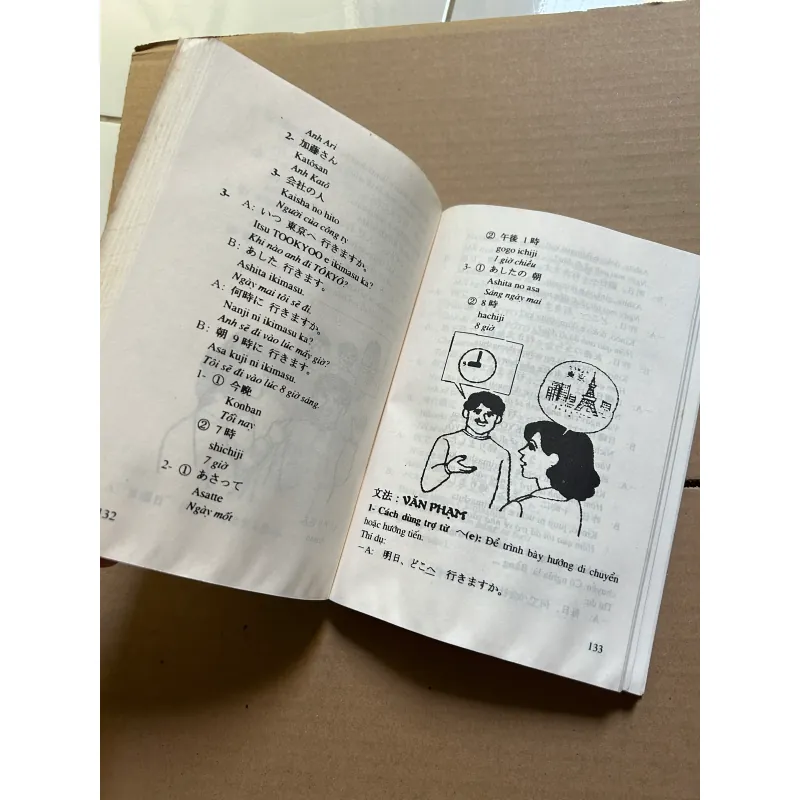 Anh Ari
2- 加藤さん
Katôsan
Anh Katô
3- 会社の人
Kaisha no hito
Người của công ty
3- A: いつ 東京へ 行きますか。
Itsu TOOKYOO e ikimasu ka?
Khi nào anh đi TÔKYÔ?
B: あした 行きます。
Ashita ikimasu.
Ngày mai tôi sẽ đi.
A: 何時に 行きますか。
Nanji ni ikimasu ka?
Anh sẽ đi vào lúc mấy giờ?
B: 朝 9時に 行きます。
Asa kuji ni ikimasu.
Tôi sẽ đi vào lúc 8 giờ sáng.
1- ① 今晩
Konban
Tối nay
② 7時
shichiji
7 giờ
2- ① あさって
Asatte
Ngày mốt
132
② 午後 1時
gogo ichiji
1 giờ chiều
3- ① あしたの 朝
Ashita no asa
Sáng ngày mai
② 8時
hachiji
8 giờ
文法 : VĂN PHẠM
1- Cách dùng trợ từ へ(e): Để trình bày hướng di chuyển
hoặc hướng tiến.
Thí dụ:
－A: 明日、どこへ 行きますか。
133